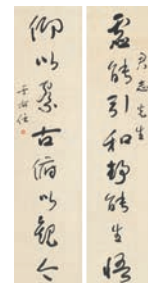 虛能引和靜能生悟
君志先生
仰以察古俯以觀今
于右任